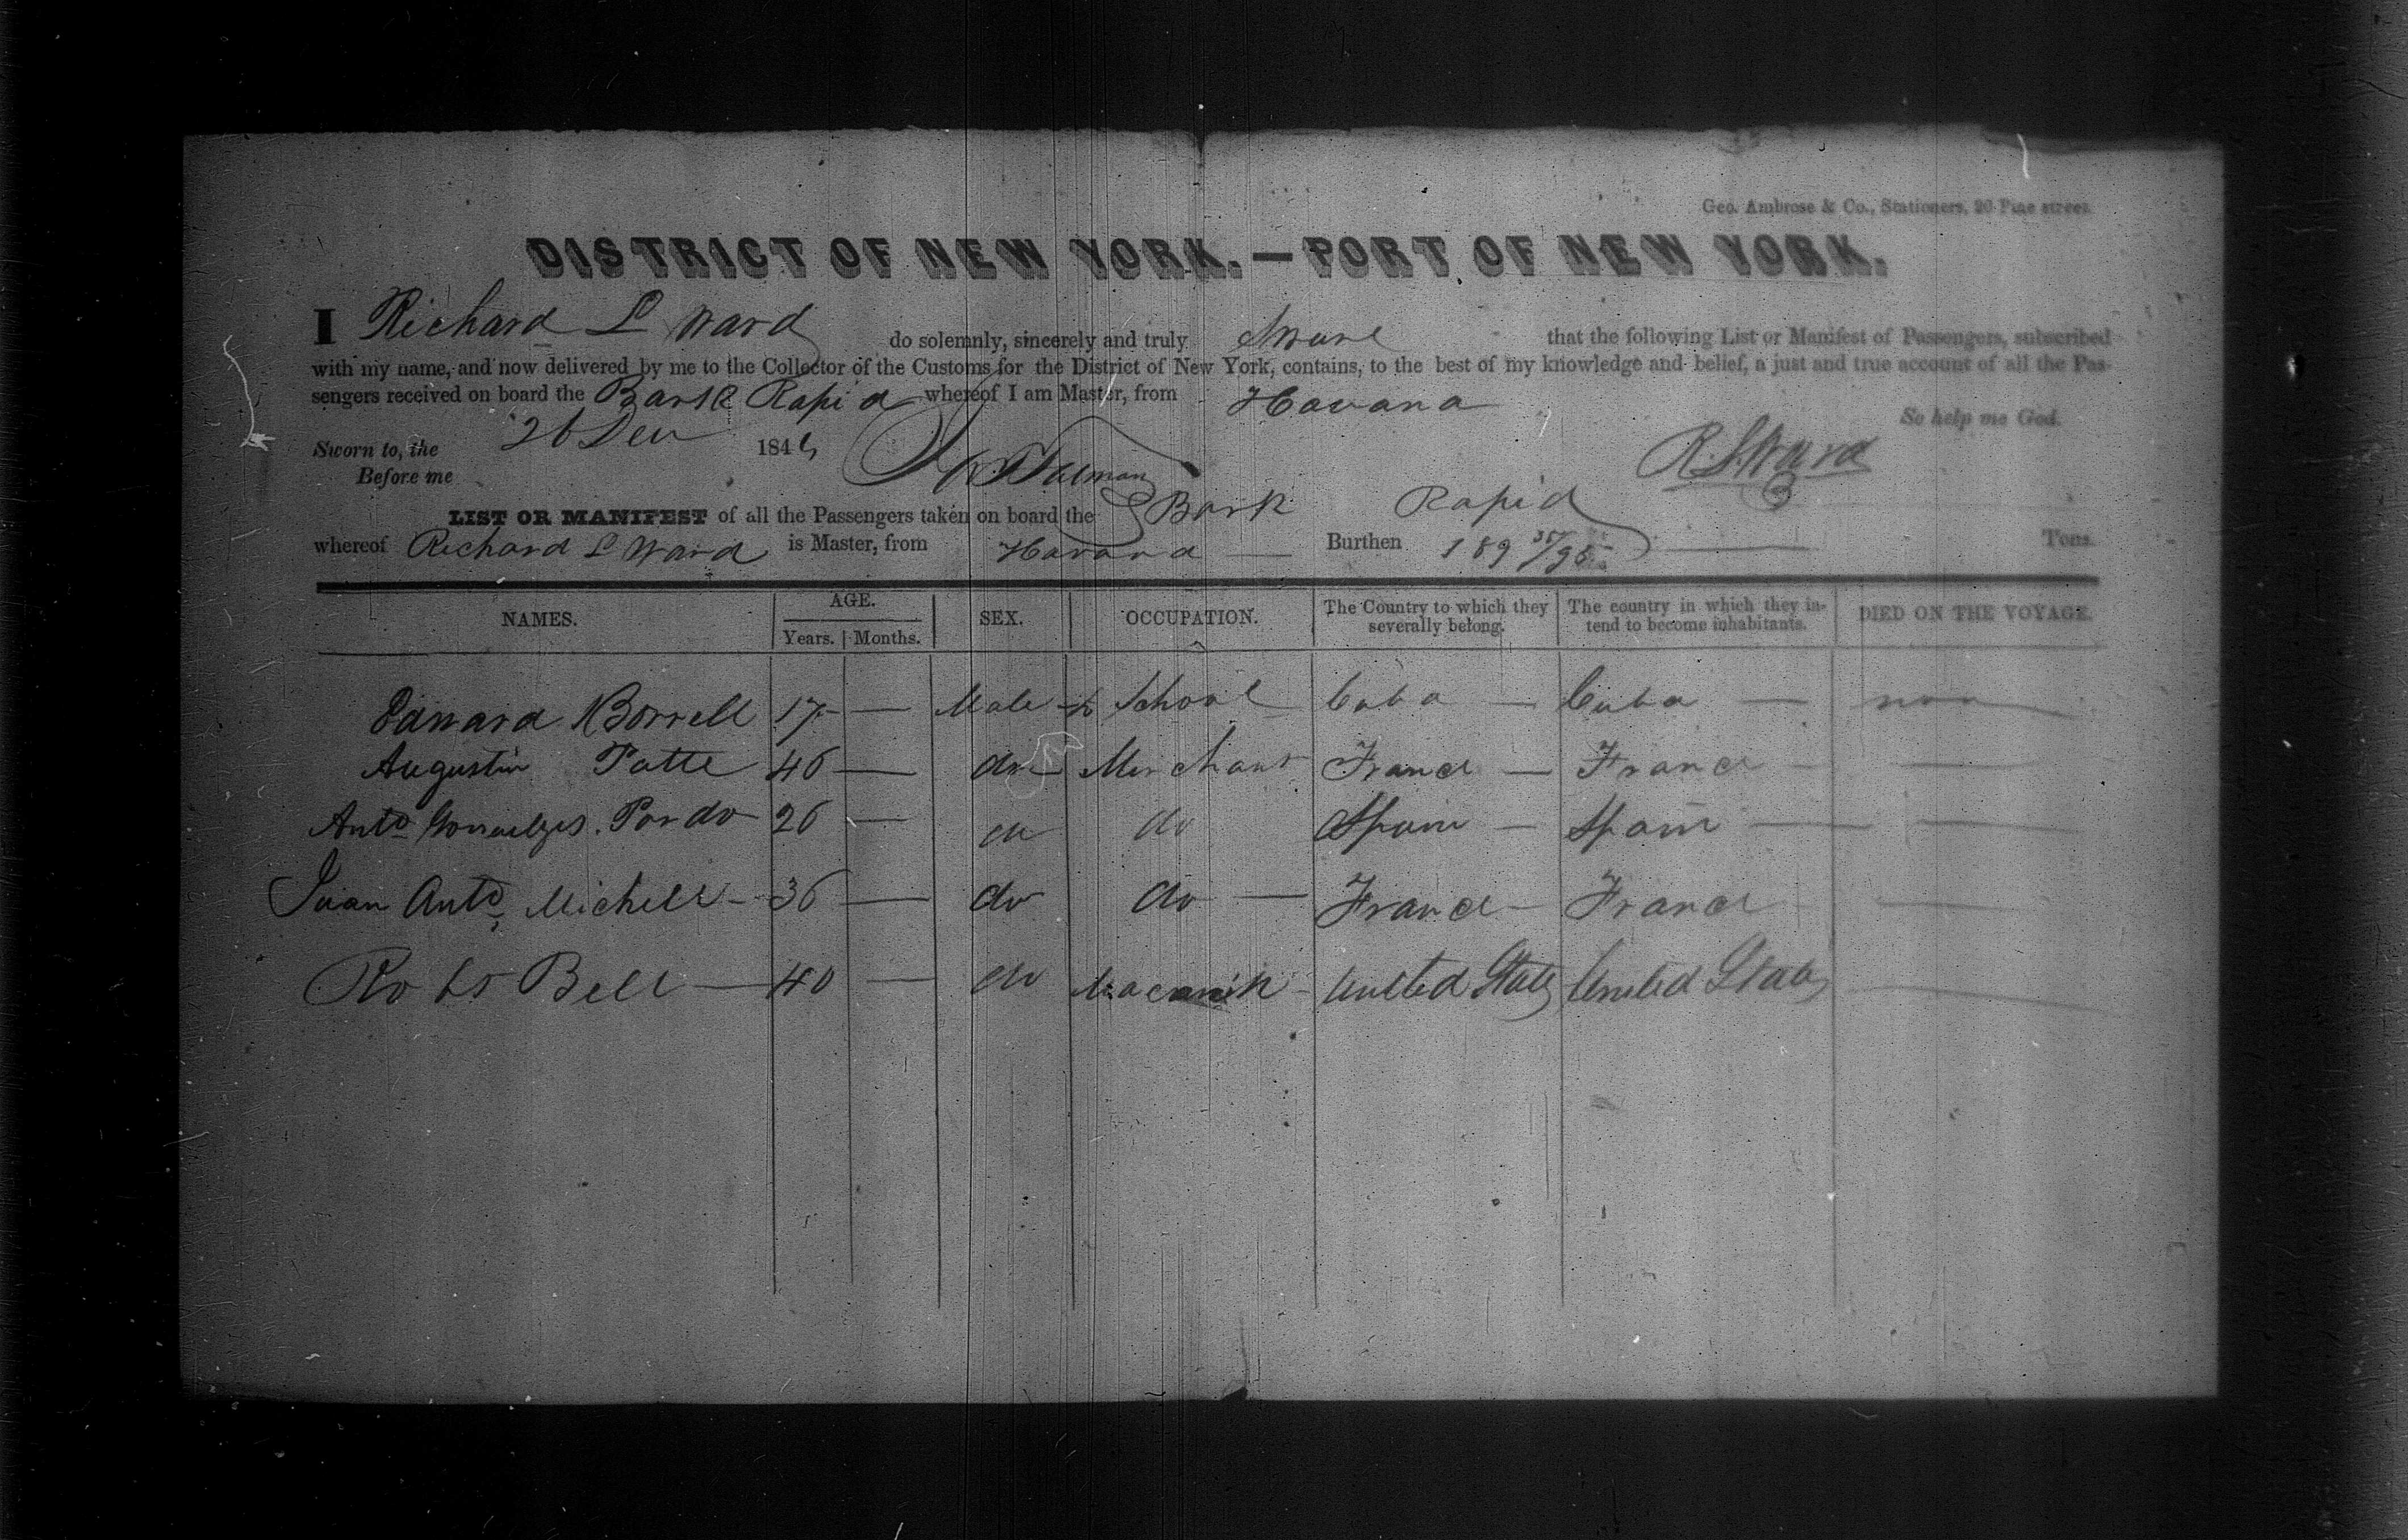 Geo. Ambrose & Co., Stationers, 20 Pine street.
DISTRICT OF NEW YORK.—PORT OF NEW YORK.
I Richard L Ward do solemnly, sincerely and truly Swear that the following List or Manifest of Passengers, subscribed
with my name, and now delivered by me to the Collector of the Customs for the District of New York, contains, to the best of my knowledge and belief, a just and true account of all the Pas-
sengers received on board the Bark Rapid whereof I am Master, from Havana
So help me God.
Sworn to, the 26 Dec 184
R. L. Ward
Before me
LIST OR MANIFEST of all the Passengers taken on board the Bark Rapid
whereof Richard L Ward is Master, from Havana — Burthen 189 38/95 — Tons.
NAMES. AGE. SEX. OCCUPATION. The Country to which they severally belong. The country in which they intend to become inhabitants. DIED ON THE VOYAGE.
Years. Months.
Edward Borrell 17 — Male to School Cuba — Cuba — non
Augustin Patte 46 — do Merchant France — France —
Anto Pardo 26 — do do Spain — Spain —
Juan Anto Michell — 36 — do do — France — France —
Robt Bell — 40 — do United States United States —